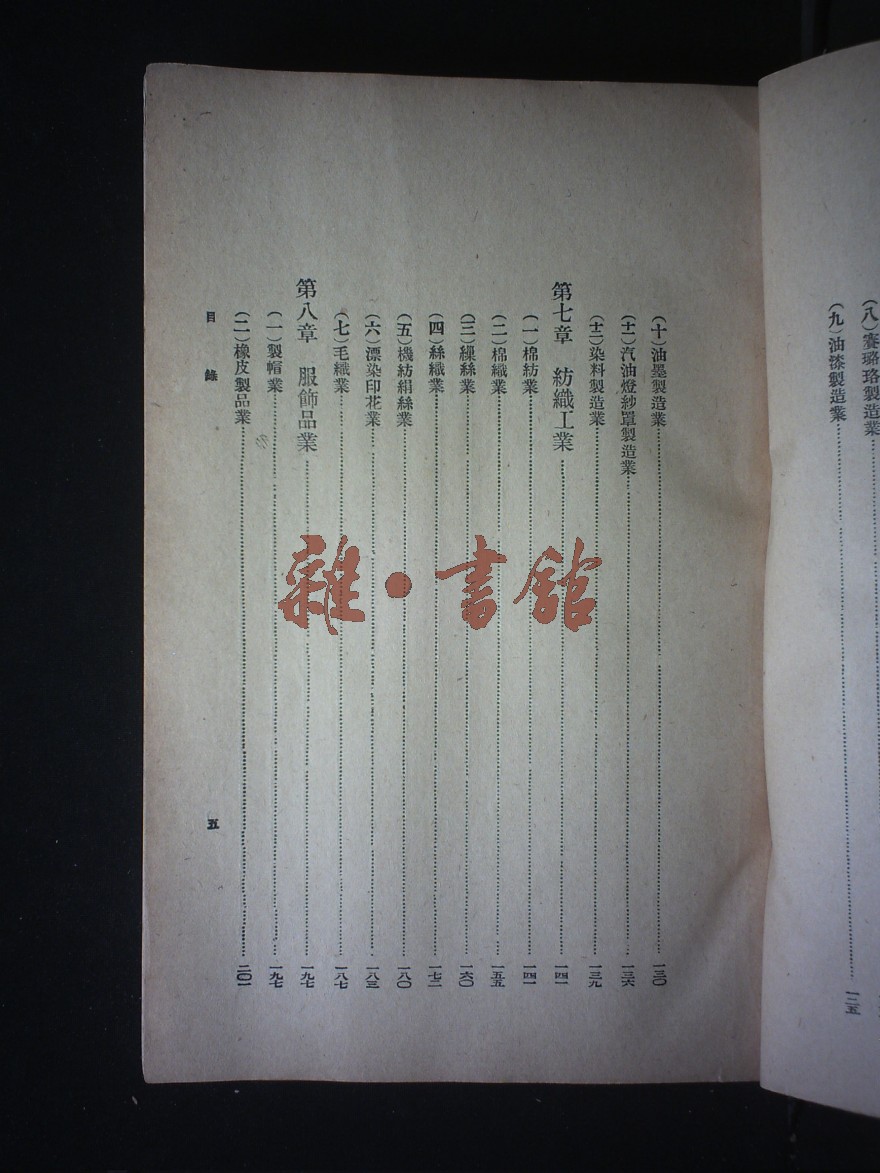 (八)賽璐珞製造業
(九)油漆製造業……一二五
(十)油墨製造業……一三〇
(十一)汽油燈紗罩製造業……一三六
(十二)染料製造業……一三九
第七章 紡織工業……一四一
(一)棉紡業……一四一
(二)棉織業……一五五
(三)繅絲業……一六〇
(四)絲織業……一七二
(五)機紡絹絲業……一八〇
(六)漂染印花業……一八三
(七)毛織業……一八七
第八章 服飾品業……一九七
(一)製帽業……一九七
(二)橡皮製品業……二〇一
目錄
五
雜·書館